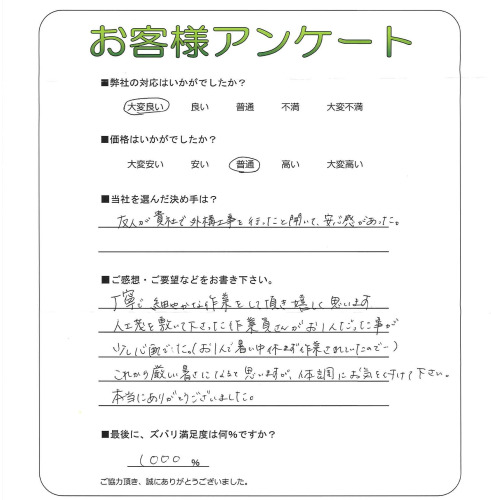 お客様アンケート
■弊社の対応はいかがでしたか？
大変良い 良い 普通 不満 大変不満
■価格はいかがでしたか？
大変安い 安い 普通 高い 大変高い
■当社を選んだ決め手は？
友人が貴社で外構工事を行ったと聞いて、安心感があった。
■ご感想・ご要望などをお書き下さい。
丁寧で細やかな作業をして頂き嬉しく思います
人工芝を敷いて下さった作業員さんがお1人だった事が
少し心配でした。(お1人で暑い中休まず作業されていたので…)
これから厳しい暑さになると思いますが、体調にお気を付けて下さい。
本当にありがとうございました。
■最後に、ズバリ満足度は何％ですか？
1000 ％
ご協力頂き、誠にありがとうございました。